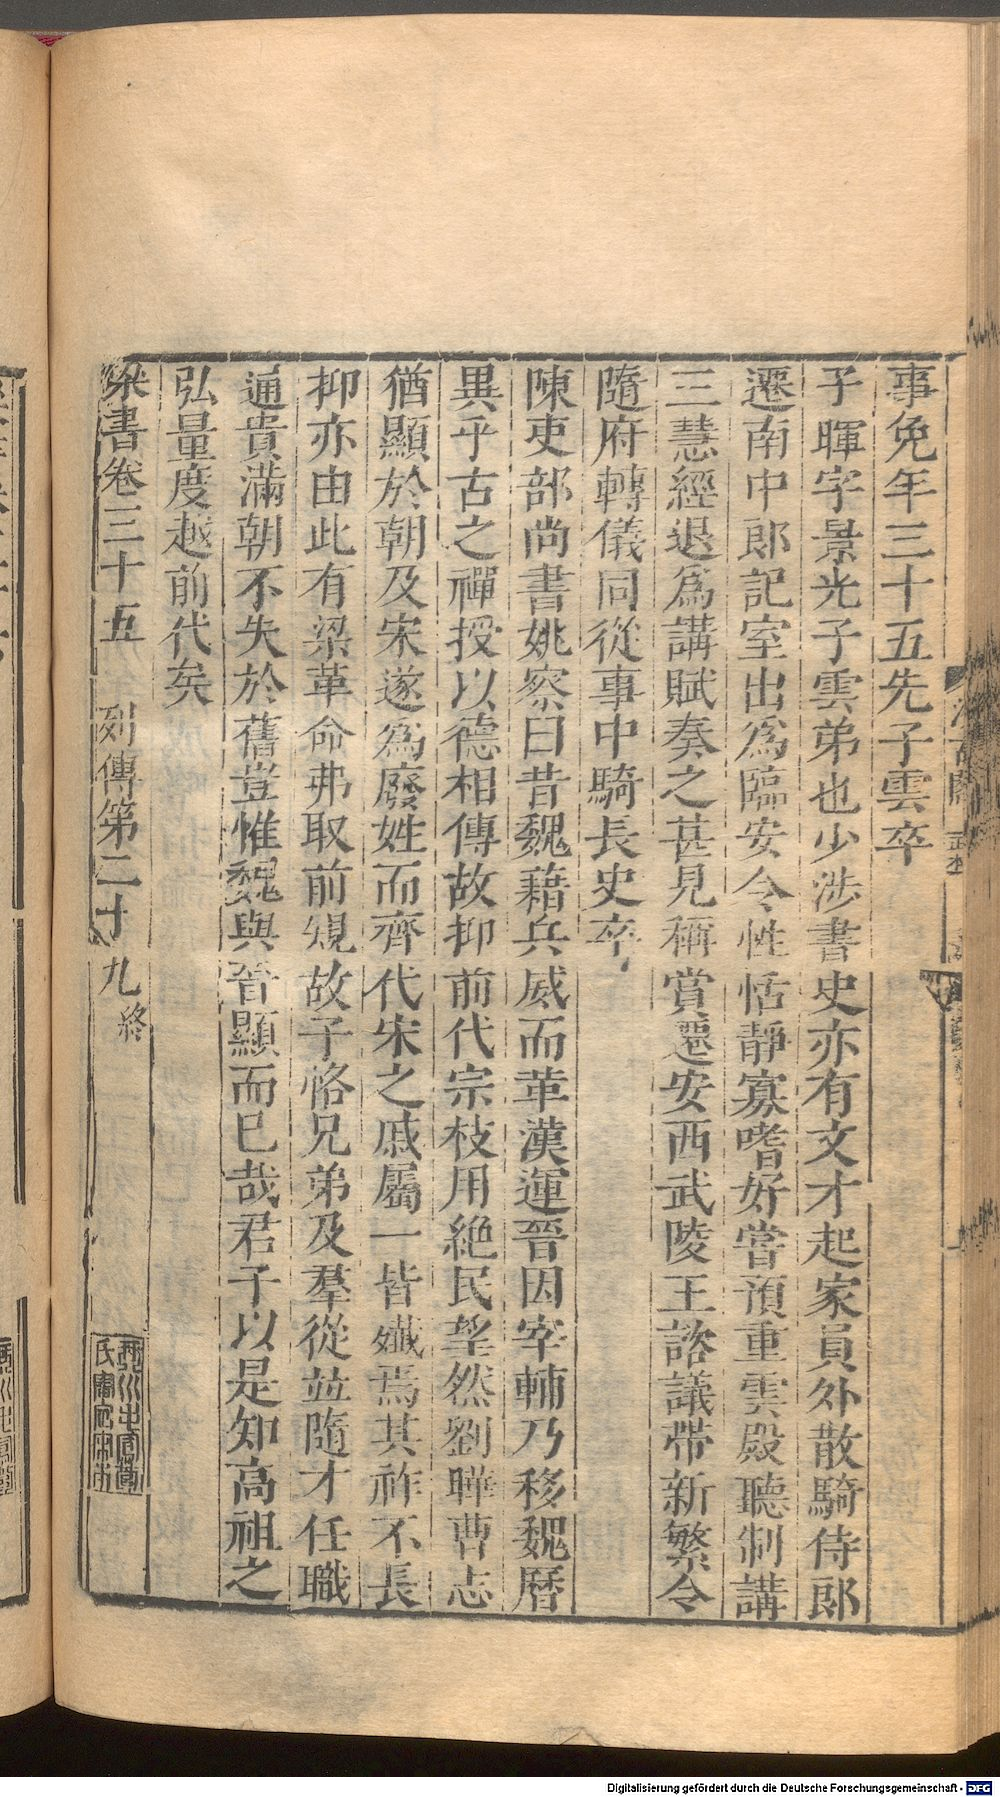 事免年三十五先子雲卒
子暉字景光子雲弟也少涉書史亦有文才起家員外散騎侍郎
遷南中郎記室出爲臨安令性恬靜寡嗜好嘗預重雲殿聽制講
三慧經退爲講賦奏之甚見稱賞遷安西武陵王諮議帶新繁令
隨府轉儀同從事中騎長史卒
陳吏部尚書姚察曰昔魏藉兵威而革漢運晉因宰輔乃移魏曆
異乎古之禪授以德相傳故抑前代宗枝用絕民望然劉曄曹志
猶顯於朝及宋遂爲廢姓而齊代宋之戚屬一皆殲焉其祚不長
抑亦由此有梁革命弗取前規故子恪兄弟及羣從並隨才任職
通貴滿朝不失於舊豈惟魏與晉顯而已哉君子以是知高祖之
弘量度越前代矣
梁書卷三十五 列傳第二十九終
汲古閣
Digitalisierung gefördert durch die Deutsche Forschungsgemeinschaft - DFG